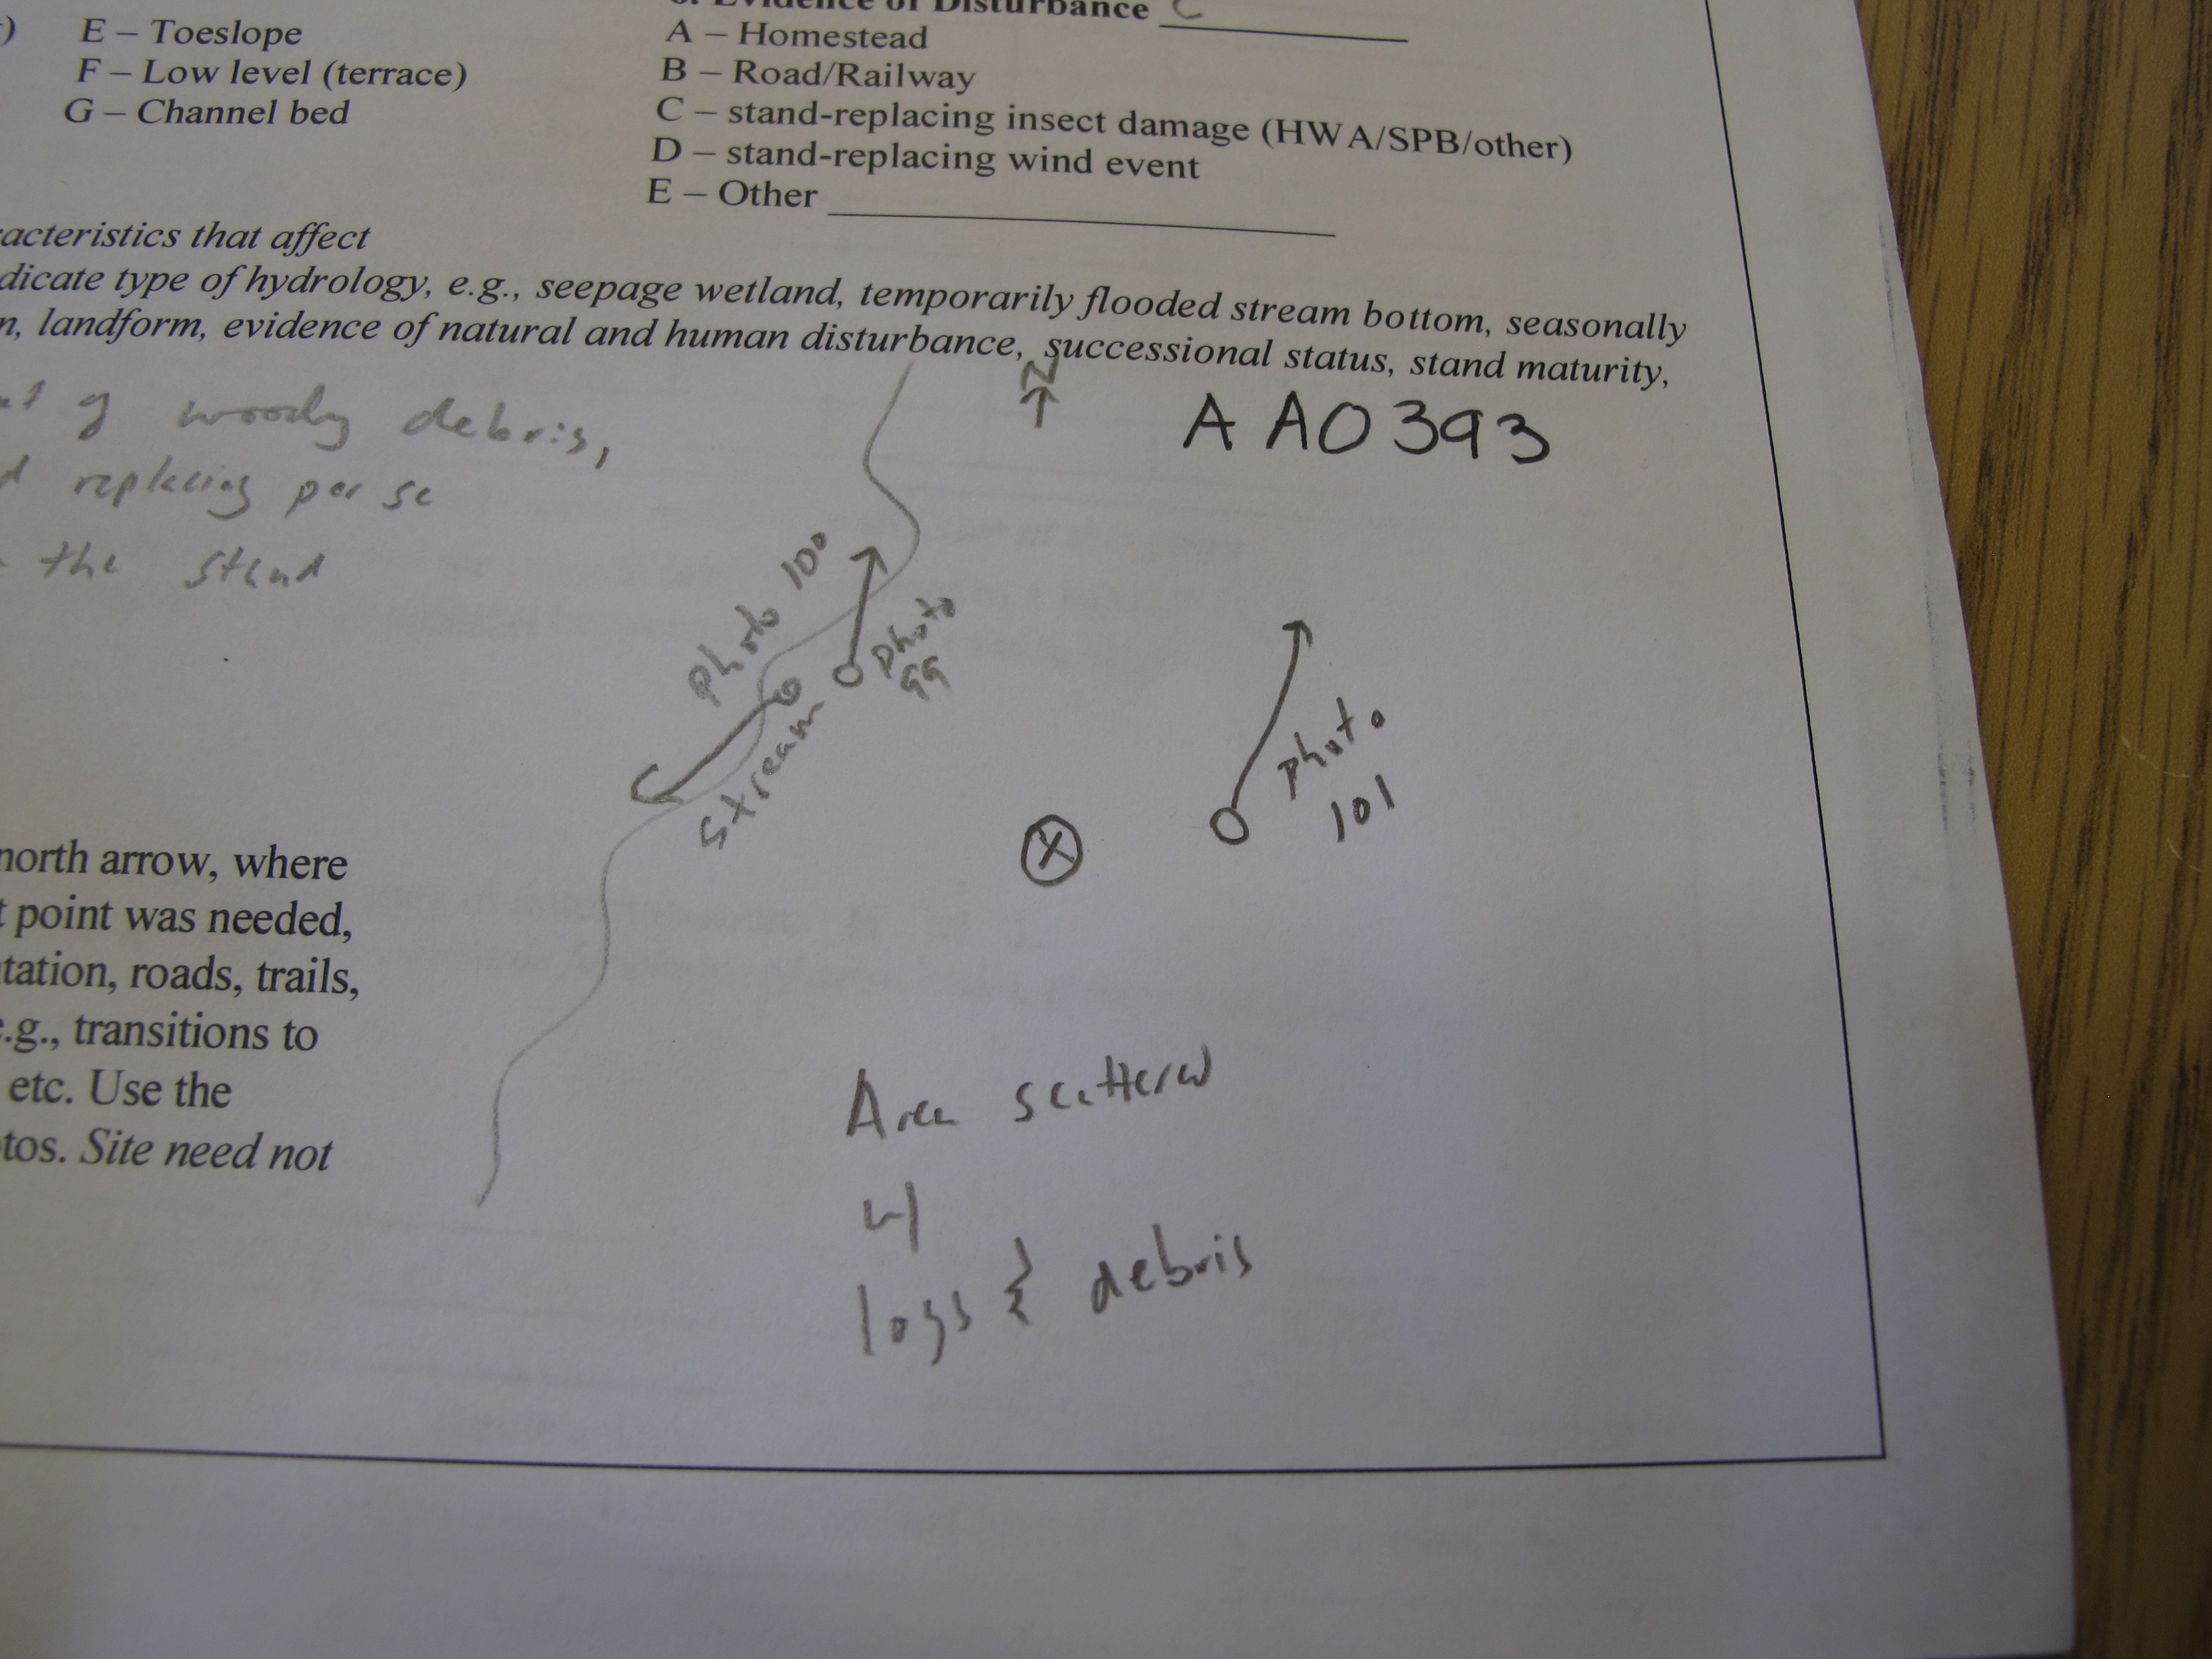 E – Toeslope
F – Low level (terrace)
G – Channel bed
Evidence of Disturbance C
A – Homestead
B – Road/Railway
C – stand-replacing insect damage (HWA/SPB/other)
D – stand-replacing wind event
E – Other
acteristics that affect
dicate type of hydrology, e.g., seepage wetland, temporarily flooded stream bottom, seasonally
n, landform, evidence of natural and human disturbance, successional status, stand maturity,
of woody debris,
replacing per se
the stand
N
AAO393
photo 100
photo
99
stream
photo
101
X
north arrow, where
t point was needed,
tation, roads, trails,
e.g., transitions to
etc. Use the
tos. Site need not
Area scattered
w/
logs & debris